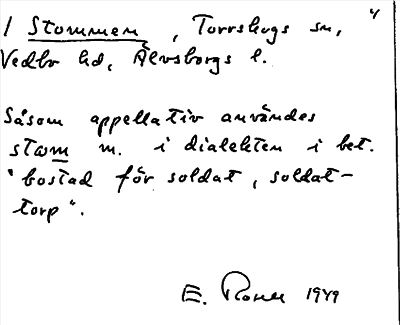 / Stommen, Torrskogs sn,
Vedbo hd, Älvsborgs l.
Såsom appellativ användes
stom m. i dialekten i bet.
"bostad för soldat, soldat-
torp".
E. 1949